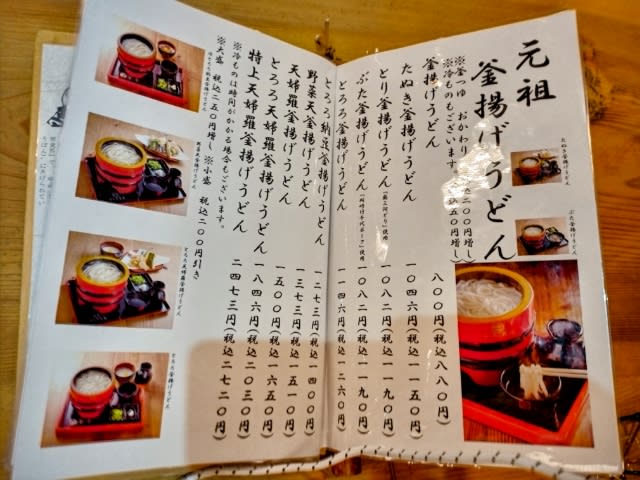 元祖
釜揚げうどん
※釜つゆ おかわり 税込二〇〇円増し
※冷ものもございます。 税込五〇円増し
釜揚げうどん 八〇〇円(税込八八〇円)
たぬき釜揚げうどん 一〇四六円(税込一一五〇円)
とり釜揚げうどん 一〇八二円(税込一一九〇円)
ぶた釜揚げうどん 一〇八二円(税込一一九〇円)
とろろ釜揚げうどん 一一四六円(税込一二六〇円)
とろろ納豆釜揚げうどん 一二七三円(税込一四〇〇円)
野菜天釜揚げうどん 一三七三円(税込一五一〇円)
天婦羅釜揚げうどん 一五〇〇円(税込一六五〇円)
とろろ天婦羅釜揚げうどん 一八四六円(税込二〇三〇円)
特上天婦羅釜揚げうどん 二四七三円(税込二七二〇円)
※冷ものは時間がかかる場合もございます。
※大盛 税込二五〇円増し ※小盛 税込二〇〇円引き
たぬき釜揚げうどん
ぶた釜揚げうどん
とろろ納豆釜揚げうどん
野菜天釜揚げうどん
とろろ天婦羅釜揚げうどん
とろろ釜揚げうどん